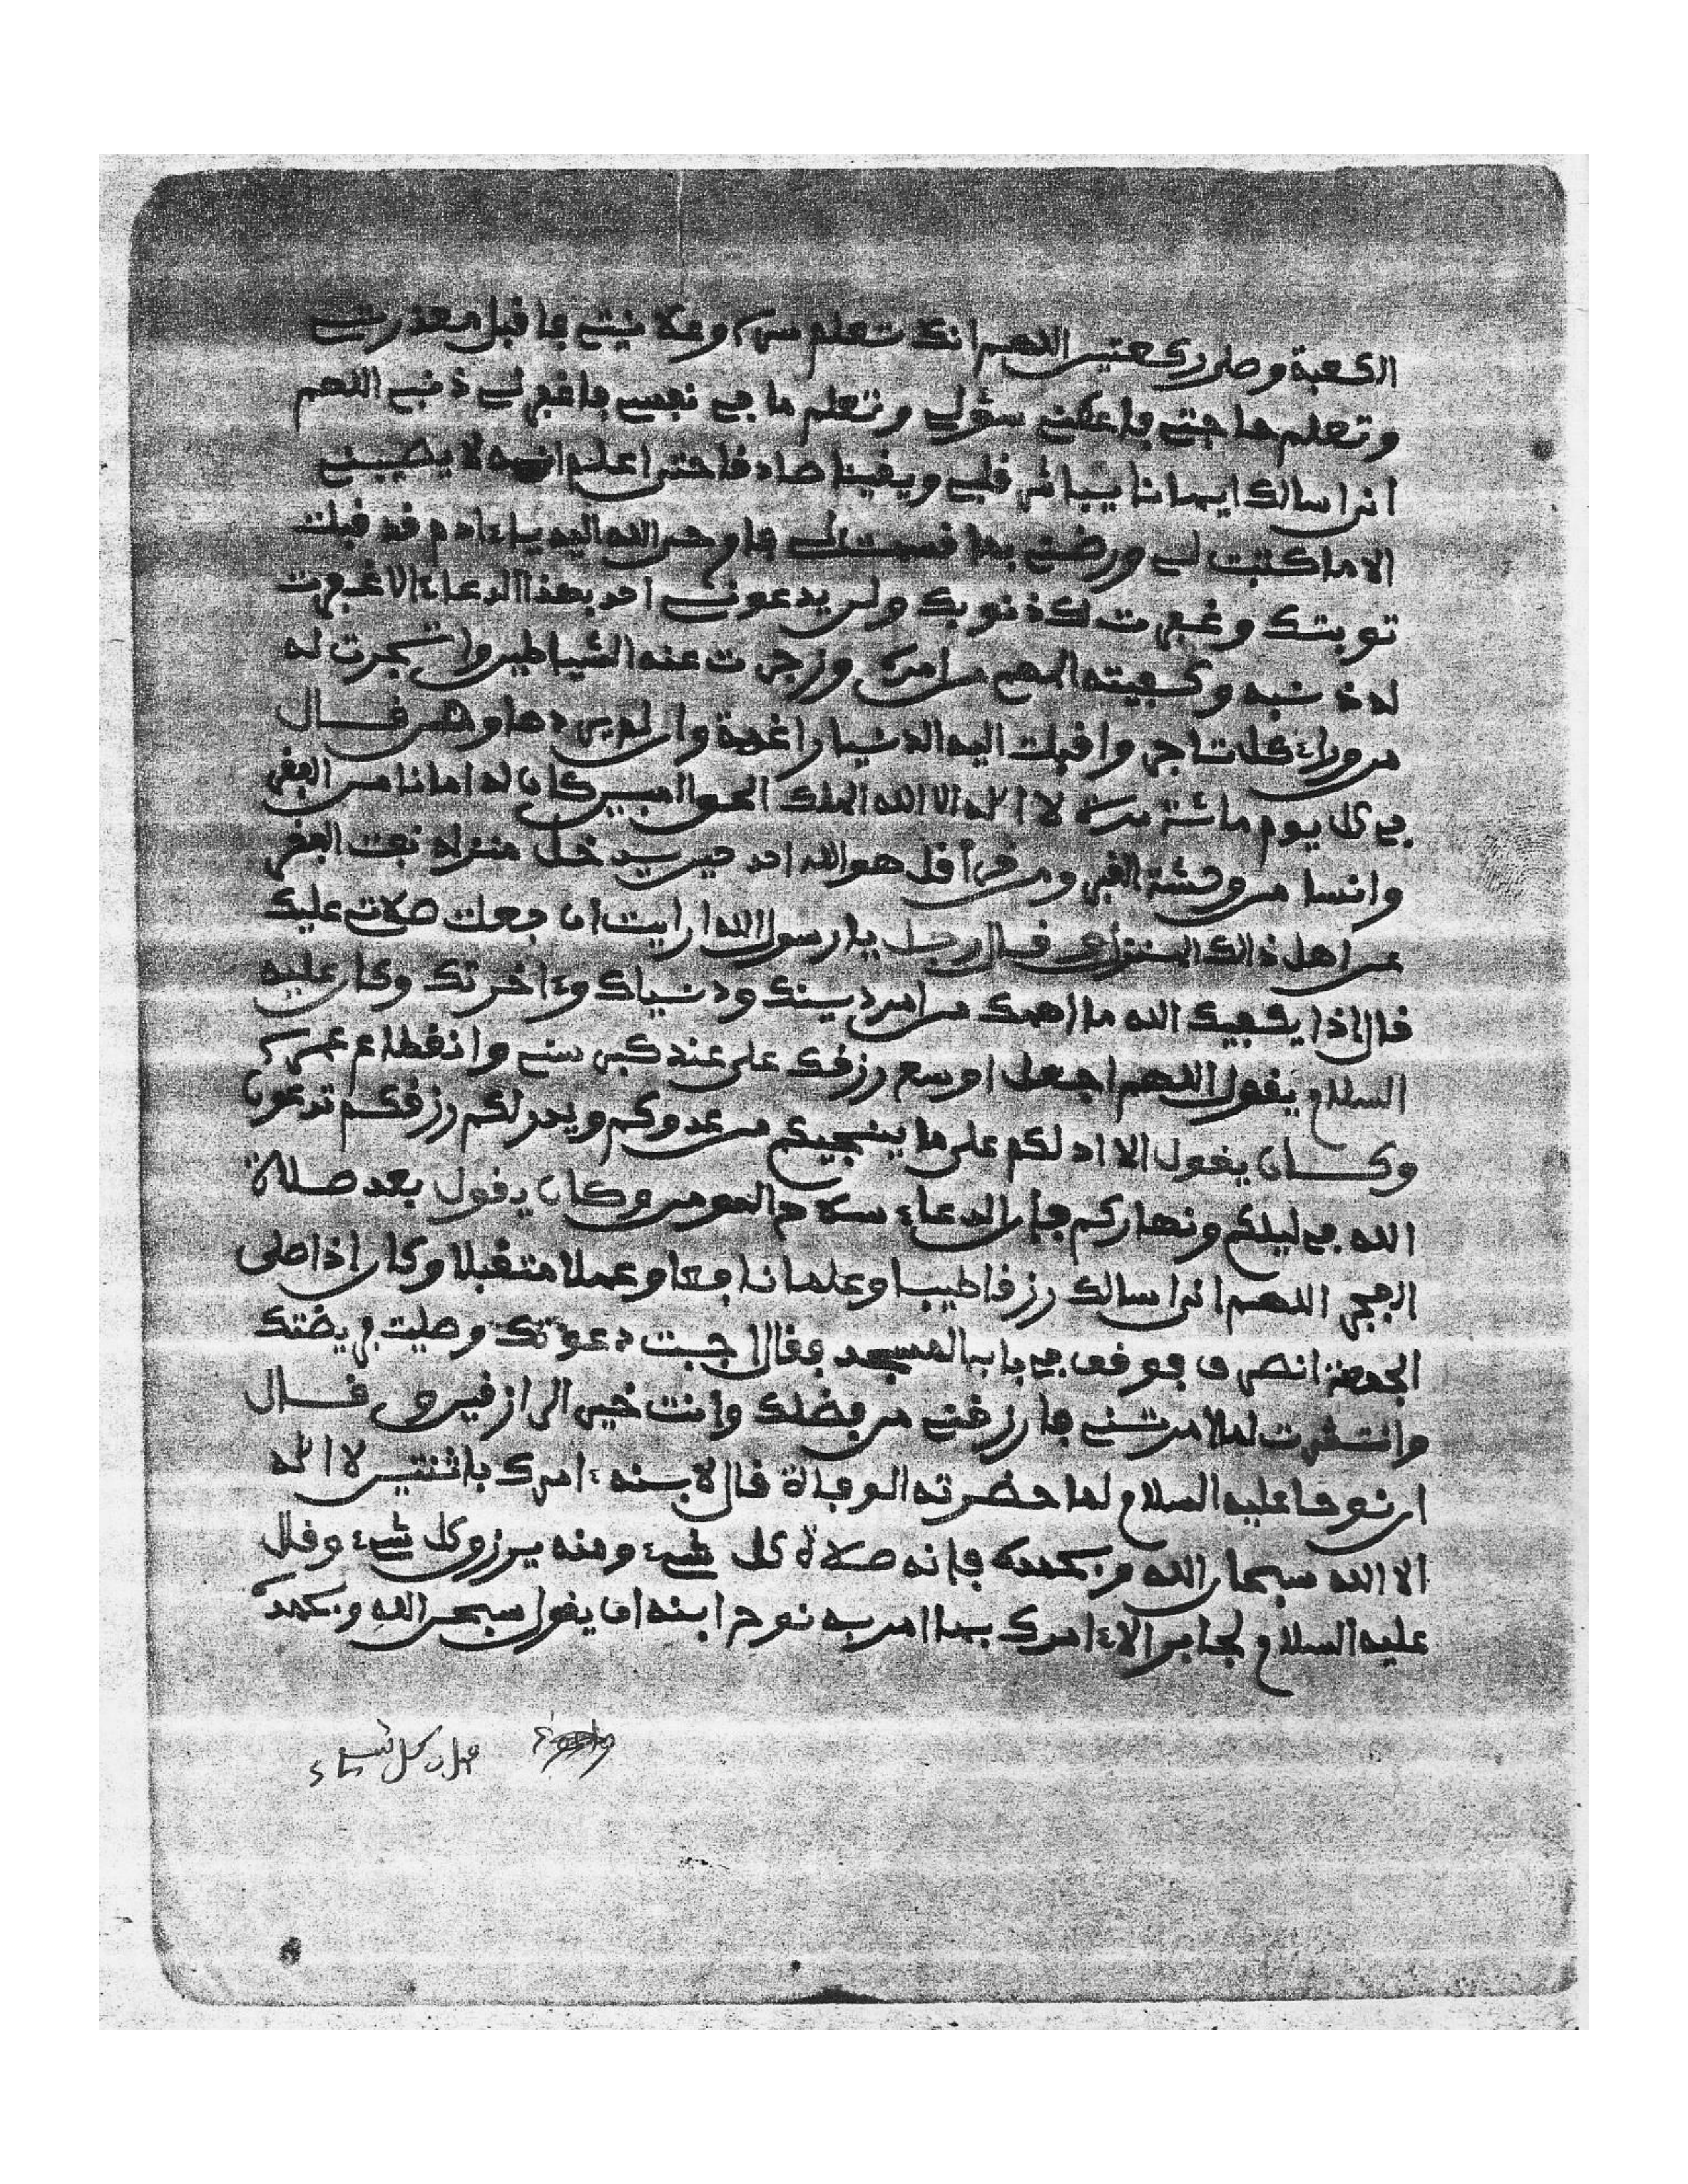 الكعبة وصلى ركعتين اللهم انك تعلم سري وعلانيتي فاقبل معذرتي
وتعلم حاجتي فاعطني سؤلي وتعلم ما في نفسي فاغفر لي ذنبي اللهم
اني اسالك ايمانا يباشر قلبي ويقينا صادقا حتى اعلم انه لا يصيبني
الا ما كتبت لي ورضني بما قسمت لي فاوحى الله اليه يا ءادم قد قبلت
توبتك وغفرت لك ذنوبك ولن يدعوني احد بهذا الدعاء الا غفرت
له ذنبه وكفيته المهم من امره وزجرت عنه الشياطين واتجرت له
من وراء كل تاجر واقبلت اليه الدنيا راغمة وان لم يردها وهن قال
في كل يوم مائة مرة لا اله الا الله الملك الحق المبين كان له امانا من الفقر
وانسا من وحشة القبر ومن قرا قل هو الله احد حين يدخل منزله نفت الفقر
عن اهل ذالك المنزل وقال رجل يا رسول الله ارايت ان جعلت صلاتي عليك
قال اذا يكفيك الله ما اهمك من امر دينك ودنياك وءاخرتك وكان عليه
السلام يقول اللهم اجعل اوسع رزقك علي عند كبر سني وانقطاع عمري
وكان يقول الا ادلكم على ما ينجيكم من عدوكم ويدر لكم رزقكم تدعون
الله في ليلكم ونهاركم فان الدعاء سلاح المومن وكان يقول بعد صلاة
الفجر اللهم اني اسالك رزقا طيبا وعلما نافعا وعملا متقبلا وكان اذا صلى
الجمعة انصرف فوقف في باب المسجد فقال اجبت دعوتك وصليت فريضتك
وانتشرت لما امرتني فارزقني من فضلك وانت خير الرازقين وقال
ان نوحا عليه السلام لما حضرته الوفاة قال لابنه ءامرك باثنتين لا اله
الا الله سبحان الله وبحمده فانه صلاة كل شيء ومنه يرزق كل شيء وقال
عليه السلام لجابر الا ءامرك بما امر به نوح ابنه ان يقول سبحن الله وبحمده